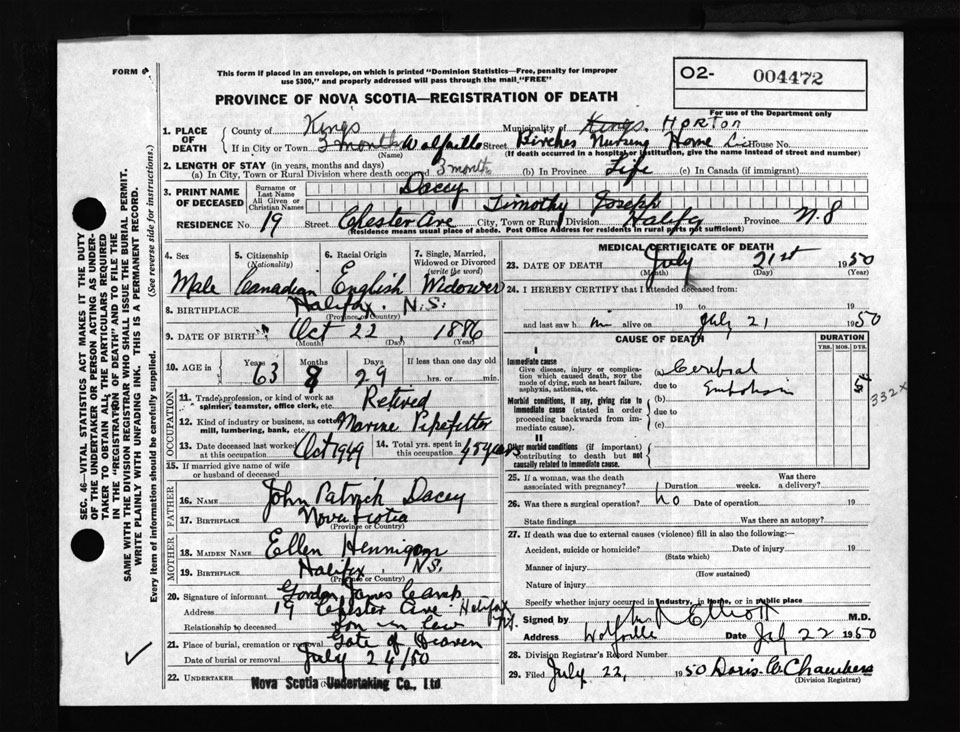 FORM 6
This form if placed in an envelope, on which is printed "Dominion Statistics—Free, penalty for improper
use $300," and properly addressed will pass through the mail "FREE"
O2- 004472
PROVINCE OF NOVA SCOTIA—REGISTRATION OF DEATH
For use of the Department only
1. PLACE OF DEATH
County of Kings Municipality of Kings. Horton
If in City or Town 3 months Wolfville Street Birches Nursing Home House No.
(Name) (If death occurred in a hospital or institution, give the name instead of street and number)
2. LENGTH OF STAY (in years, months and days)
(a) In City, Town or Rural Division where death occurred 3 months (b) In Province Life (c) In Canada (if immigrant)
3. PRINT NAME OF DECEASED
Surname or Last Name Dacey
All Given or Christian Names Timothy Joseph
RESIDENCE No. 19 Street Chester Ave City, Town or Rural Division Halifax Province N.S
(Residence means usual place of abode. Post Office Address for residents in rural parts not sufficient)
4. Sex
5. Citizenship (Nationality)
6. Racial Origin
7. Single, Married, Widowed or Divorced (write the word)
Male Canadian English Widower
8. BIRTHPLACE Halifax. N.S.
(Province or Country)
9. DATE OF BIRTH Oct 22 1886
(Month) (Day) (Year)
10. AGE in Years Months Days If less than one day old
63 8 29 hrs. or min.
OCCUPATION
11. Trade, profession, or kind of work as
spinner, teamster, office clerk, etc. Retired
12. Kind of industry or business, as cotton
mill, lumbering, bank, etc. Marine Pipefitter
13. Date deceased last worked
at this occupation Oct 1949
14. Total yrs. spent in
this occupation 45 years
15. If married give name of wife
or husband of deceased
FATHER
16. NAME John Patrick Dacey
17. BIRTHPLACE Nova Scotia
(Province or Country)
MOTHER
18. MAIDEN NAME Ellen Hennigan
19. BIRTHPLACE Halifax. N.S.
(Province or Country)
20. Signature of informant Gordon James
Address 19 Chester Ave. Halifax
Relationship to deceased Son in law
21. Place of burial, cremation or removal Gate of Heaven
Date of burial or removal July 24/50
22. UNDERTAKER Nova Scotia Undertaking Co., Ltd
MEDICAL CERTIFICATE OF DEATH
23. DATE OF DEATH July 21st 1950
(Month) (Day) (Year)
24. I HEREBY CERTIFY that I attended deceased from:
19 to 19
and last saw h im alive on July 21 1950
CAUSE OF DEATH
DURATION
YRS. MOS. DYS.
I
Immediate cause
Give disease, injury or complication which caused death, NOT the mode of dying, such as heart failure, asphyxia, asthenia, etc.
(a) Cerebral
due to Embolism
(b)
due to
(c)
332X
Morbid conditions, if any, giving rise to immediate cause (stated in order proceeding backwards from immediate cause).
II
Other morbid conditions (if important) contributing to death but not causally related to immediate cause.
25. If a woman, was the death
associated with pregnancy? Duration weeks. Was there a delivery?
26. Was there a surgical operation? no Date of operation 19
State findings Was there an autopsy?
27. If death was due to external causes (violence) fill in also the following:
Accident, suicide or homicide? Date of injury 19
(State which)
Manner of injury
(How sustained)
Nature of injury
Specify whether injury occurred in Industry, in Home, or in public place
Signed by Elliott M.D.
Address Wolfville Date July 22 1950
28. Division Registrar's Record Number
29. Filed July 22, 1950 Doris C. Chambers
(Division Registrar)
SEC. 46—VITAL STATISTICS ACT MAKES IT THE DUTY
OF THE UNDERTAKER OR PERSON ACTING AS UNDER-
TAKER TO OBTAIN ALL THE PARTICULARS REQUIRED
IN THE "REGISTRATION OF DEATH" AND TO FILE THE
SAME WITH THE DIVISION REGISTRAR WHO SHALL ISSUE THE BURIAL PERMIT.
WRITE PLAINLY WITH UNFADING INK. THIS IS A PERMANENT RECORD.
Every item of information should be carefully supplied. (See reverse side for instructions.)